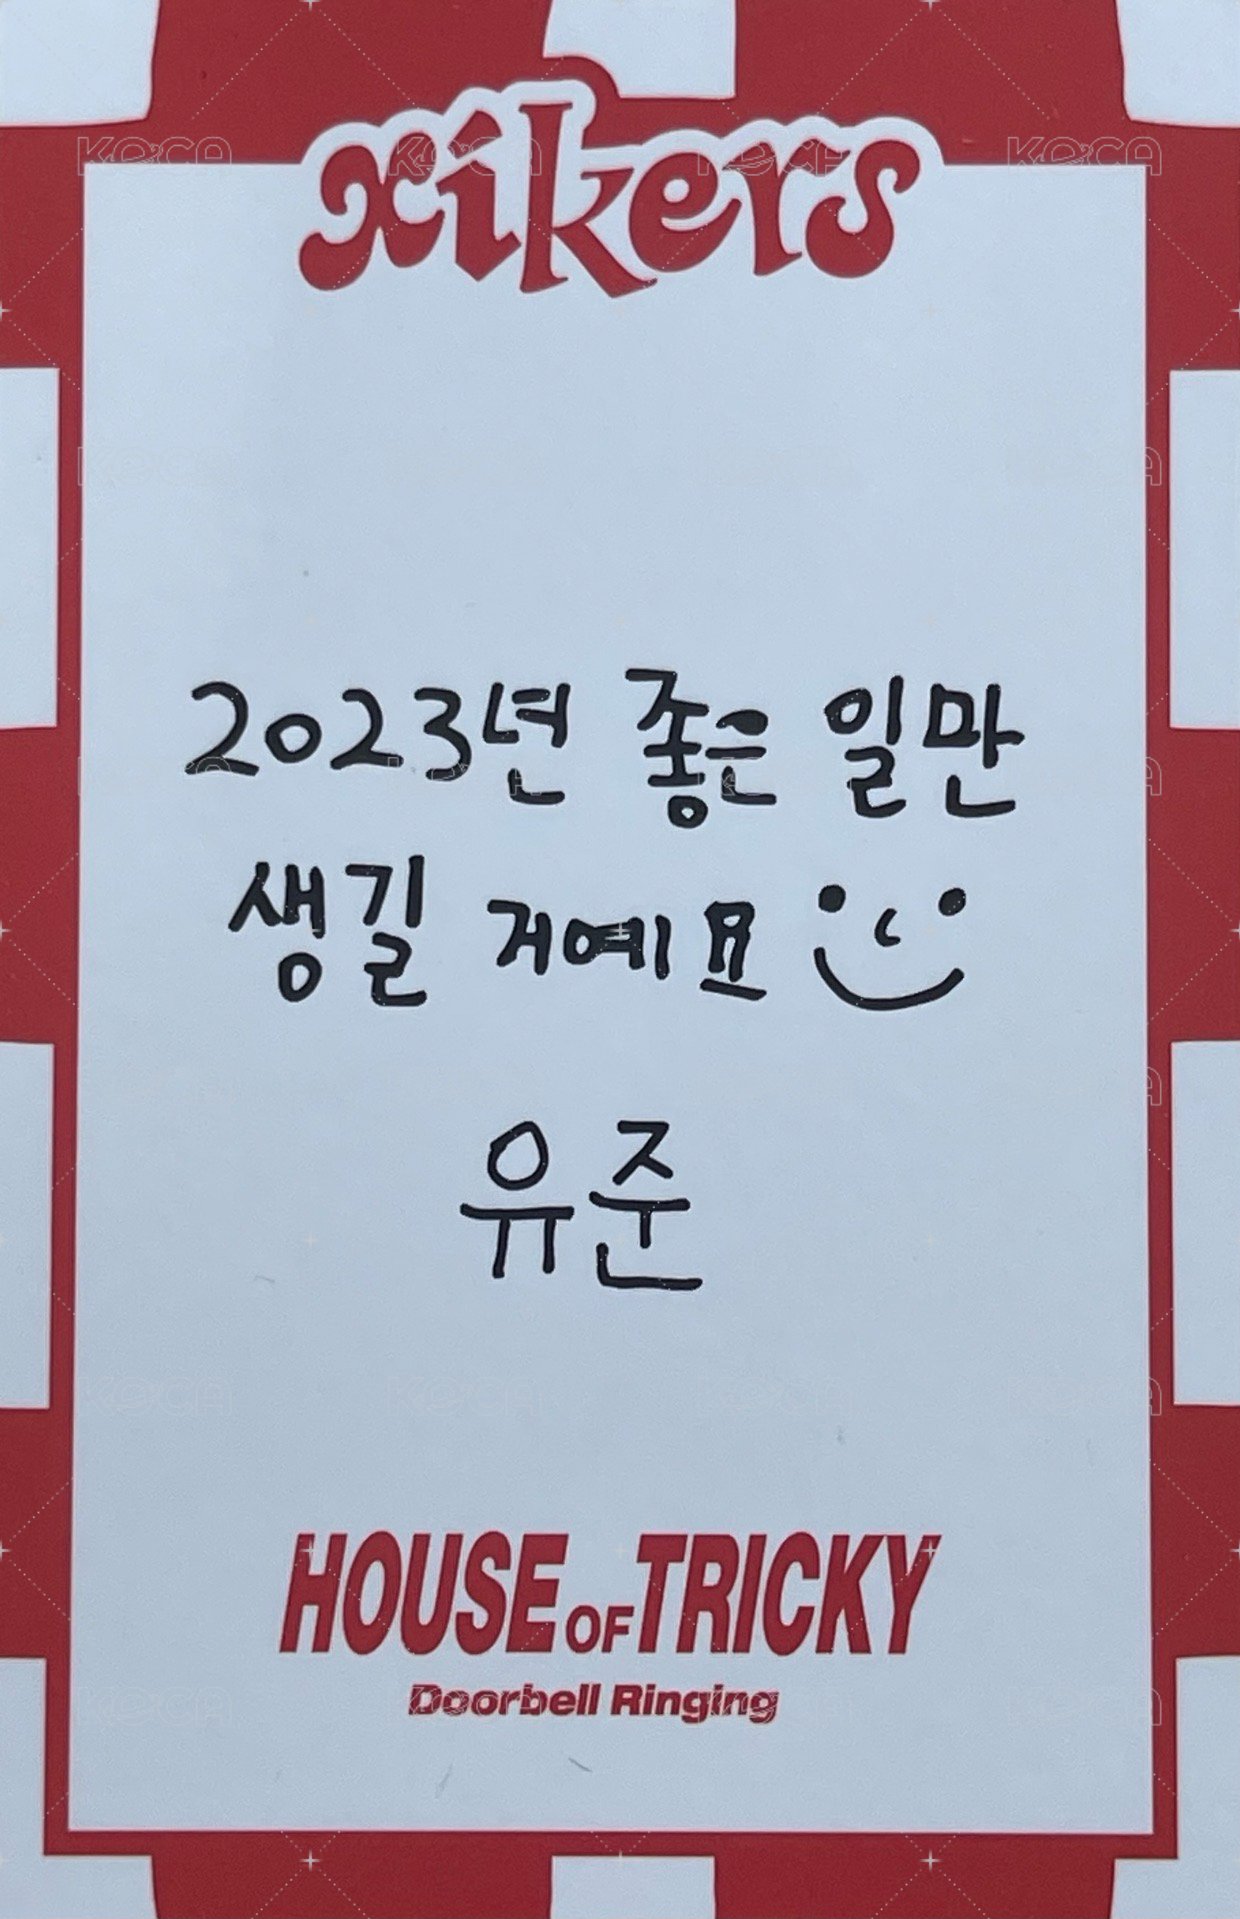 xikers
2023년 좋은 일만
생길 거예요
유준
HOUSE OF TRICKY
Doorbell Ringing
KOCA